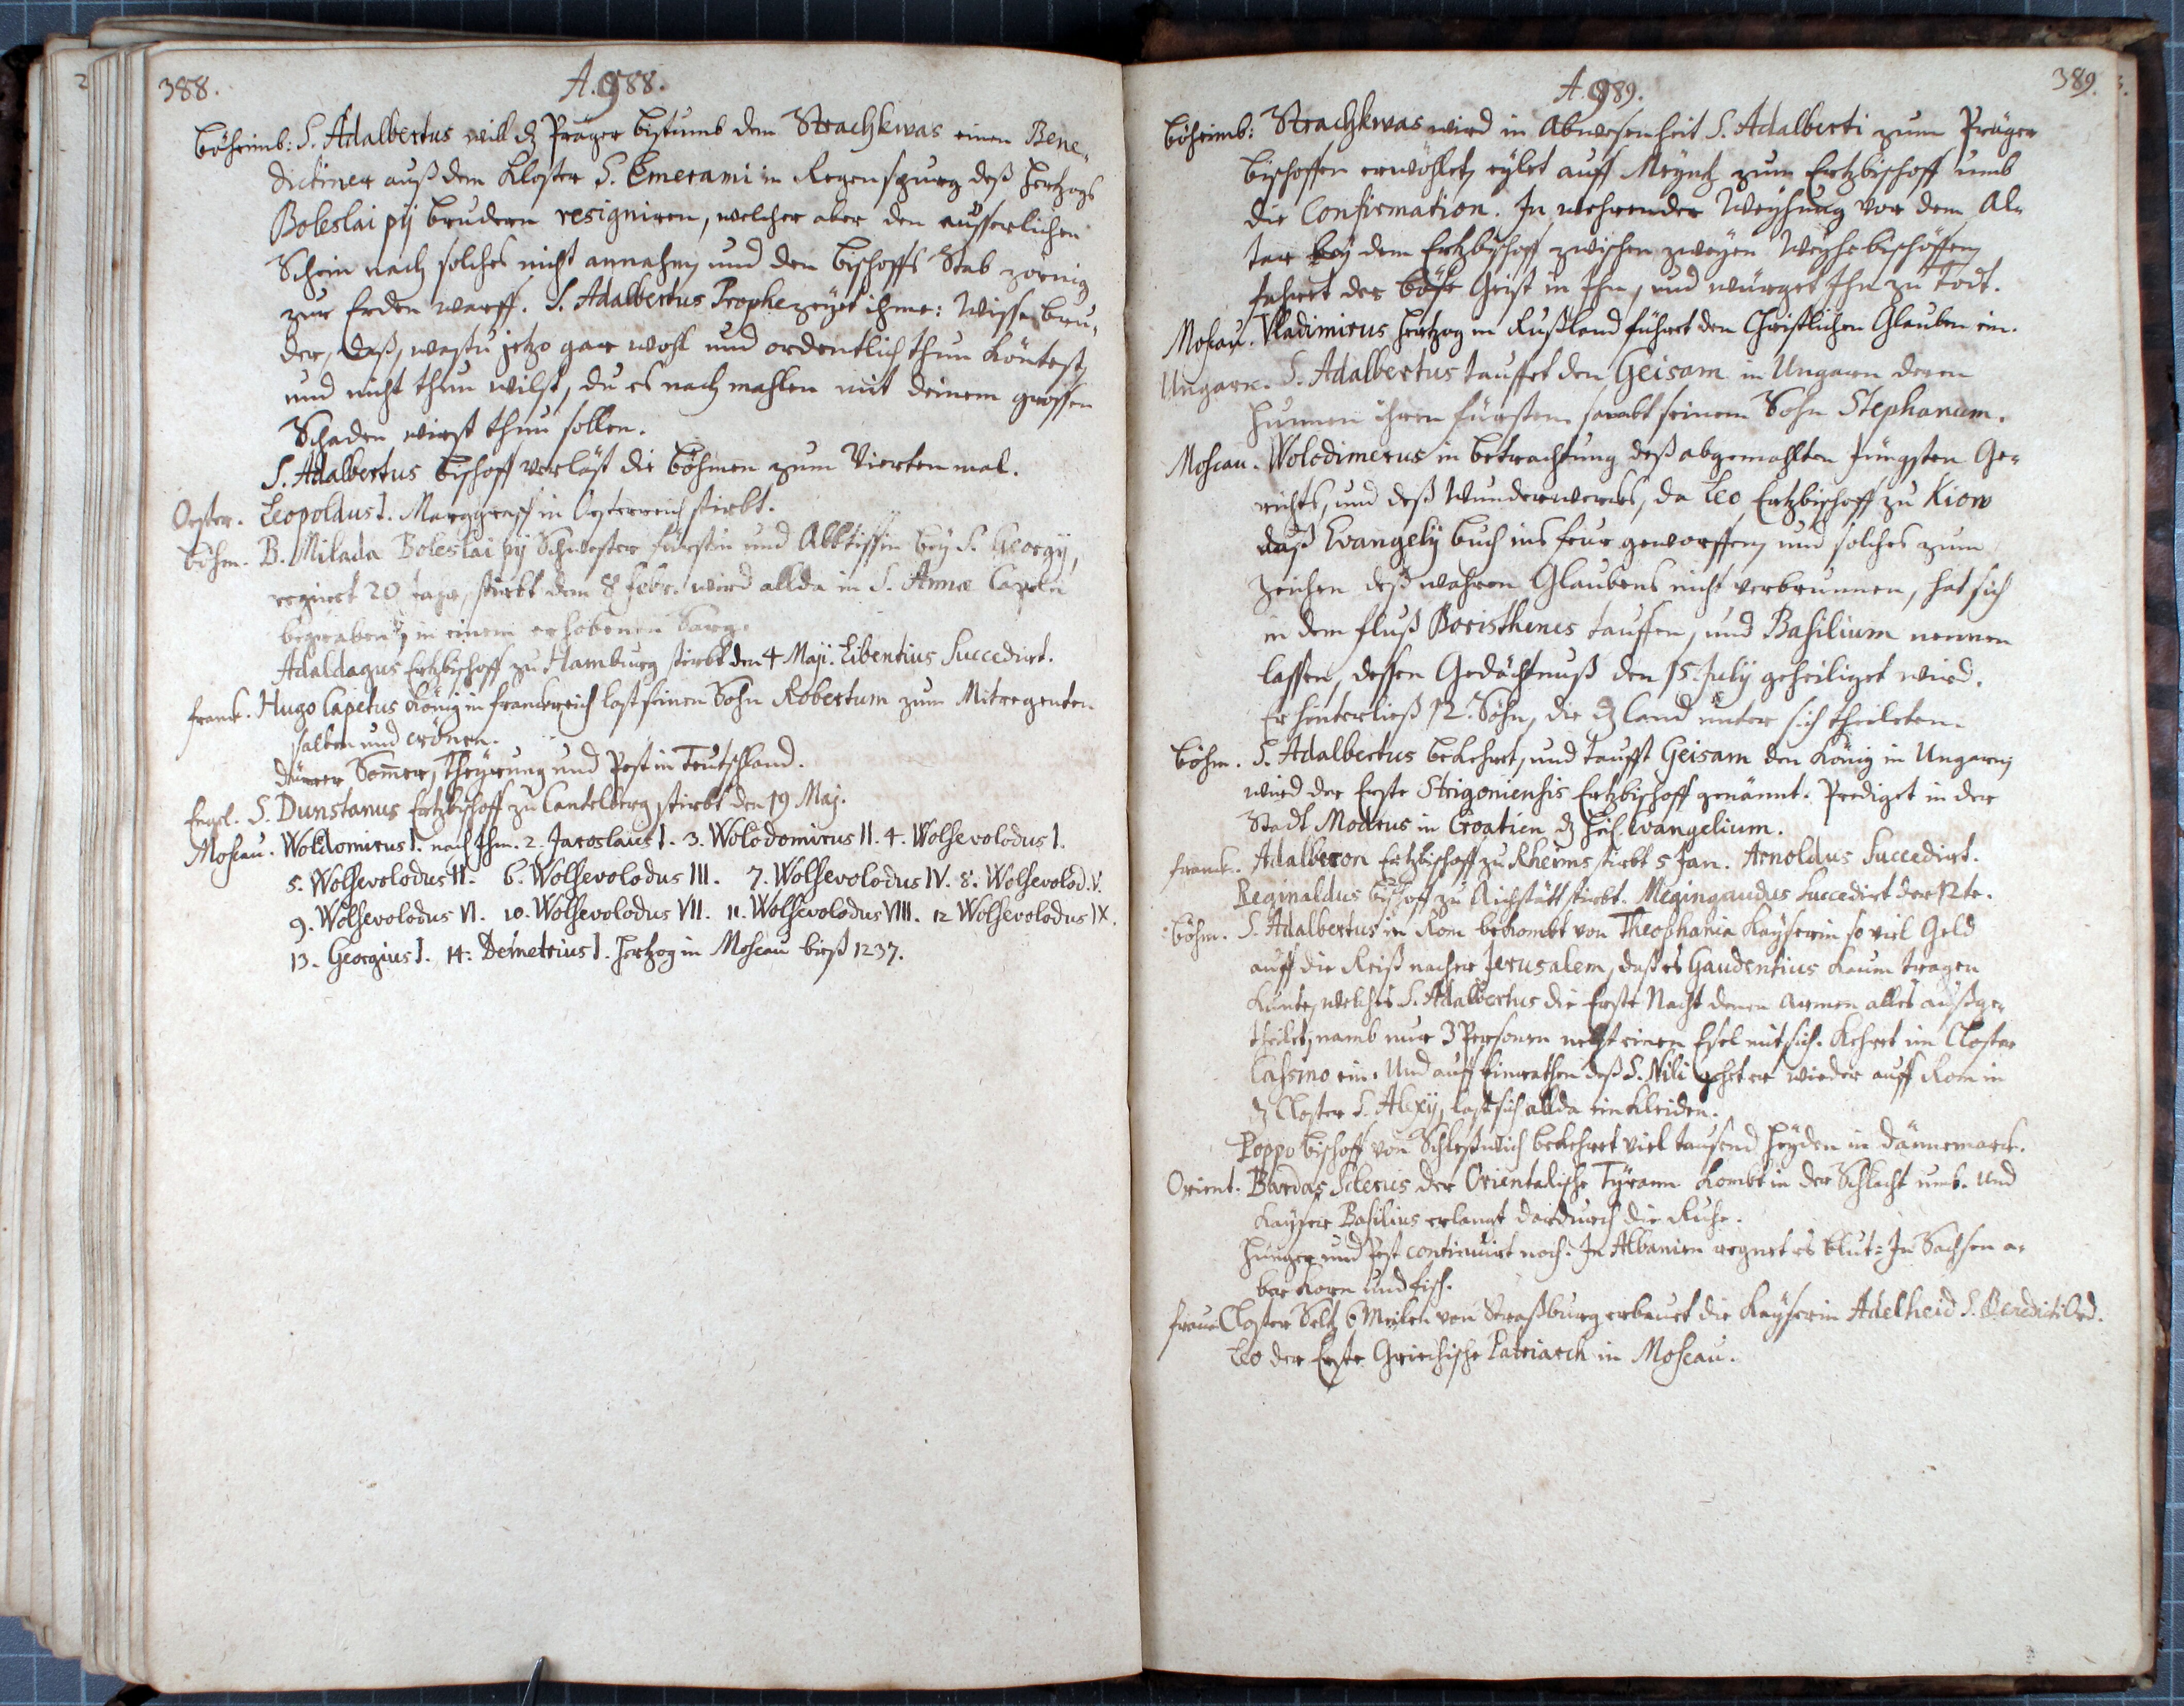 388.
A. 988.
Böheimb: S. Adalbertus will dz Präger Bistumb dem Strachkwas einen Bene-
dictiner auß dem Kloster S. Emerami in Regenspurg deß Hertzogs
Boleslai pij Brudern resigniren, welcher aber den äusserlichen
Schein nach solches nicht annahm, und den Bischoffs Stab zornig
zur Erden warff. S. Adalbertus Prophezeyet ihme: Wisse Bru-
der, daß, wastu jetzo gar wohl und ordentlich thun köntest,
und nicht thun wilst, du es nachmahlen mit deinem grossen
Schaden wirst thun sollen.
S. Adalbertus Bischoff verläst die Böhmen zum Vierten mal.
Oester. Leopoldus I. Marggraff in Oesterreich stirbt.
Böhm. B. Milada Boleslai pij Schwester Fürstin und Abbtissin bey S. Georgij,
regiert 20 Jahr, stirbt den 8 Febr. wird allda in S. Annæ Capeln
begraben, in einem erhobenen Sarg.
Adaldagus Ertzbischoff zu Hamburg stirbt den 4 Maji. Libentius Succedirt.
Franck. Hugo Capetus König in Franckreich last seinen Sohn Robertum zum Mitregenten
salben und crönen.
Dürrer Sommer, Theyrung und Pest in Teutschland.
Engel. S. Dunstanus Ertzbischoff zu Cantelberg stirbt den 19 Maj.
Moscau. Woldomirus I. nach Ihm. 2. Jaroslaus I. 3. Wolodomirus II. 4. Wolsevolodus I.
5. Wolsevolodus II. 6. Wolsevolodus III. 7. Wolsevolodus IV. 8. Wolsevolod. V.
9. Wolsevolodus VI. 10. Wolsevolodus VII. 11. Wolsevolodus VIII. 12 Wolsevolodus IX.
13. Georgius I. 14. Demetrius I. Hertzog in Moscau bieß 1237.
389.
A. 989.
Böheimb: Strachkwas wird in Abwesenheit S. Adalberti zum Präger
Bischoffen erwöhlet, eylet auff Meyntz zum Ertzbischoff umb
die Confirmation. In wehrender Weyhung vor dem Al-
tar bey dem Ertzbischoff zwischen zweyen Weyhebischöffen,
fahret der böse Geist in Ihn, und würget Ihn zu Todt.
Moscau. Vladimirus Hertzog in Rußland führet den Christlichen Glauben ein.
Ungarn. S. Adalbertus tauffet den Geisam in Ungarn deren
Hunnen ihren Fürsten sambt seinem Sohn Stephanum.
Moscau. Wolodimerus in betrachtung deß abgemahlten Jüngsten Ge-
richts, und deß Wunderwercks, da Leo Ertzbischoff zu Kiow
daß Evangely Buch ins Feur geworffen, und solches zum
Zeichen deß wahren Glaubens nicht verbrunnen, hat sich
in dem Fluß Boristhenes tauffen, und Basilium nennen
lassen, dessen Gedächtnuß den 15. July geheiliget wird.
Er hinterließ 12. Söhn, die dz Land unter sich theileten.
Böhm. S. Adalbertus bekehret, und taufft Geisam den König in Ungarn,
wird der Erste Strigoniensis Ertzbischoff genännt. Prediget in der
Stadt Modrus in Croatien dz heil. Evangelium.
Franck. Adalberon Ertzbischoff zu Rheims stirbt 5 Jan. Arnoldus Succedirt.
Reginaldus Bischoff zu Aichstätt stirbt. Megingaudus Succedirt der 12te.
Böhm. S. Adalbertus in Rom bekombt von Theophania Kayserin so viel Geld
auff die Reiß nacher Jerusalem, daß es Gaudentius kaum tragen
kunte, welches S. Adalbertus die Erste Nacht denen armen alles außge-
theilet, namb nur 3 Personen nebst einem Esel mit sich. Kehret im Closter
Cassino ein. Und auff Einrathen deß S. Nili gehet er wieder auff Rom in
dz Closter S. Alexij, last sich allda einkleiden.
Poppo Bischoff von Schleßwich bekehret viel tausend Heyden in Dännemarck.
Orient. Bardas Sclerus der Orientalische Tyrann kombt in der Schlacht umb. Und
Kayser Basilius erlangt dardurch die Ruhe.
Hunger und Pest continuirt noch. In Albanien regnet es Blut: In Sachsen a-
ber Korn und Fisch.
Franck Closter Seltz 6 Meilen von Straßburg erbauet die Kayserin Adelheid S. Benedicti Ord.
Leo der Erste Griechische Patriarch in Moscau.